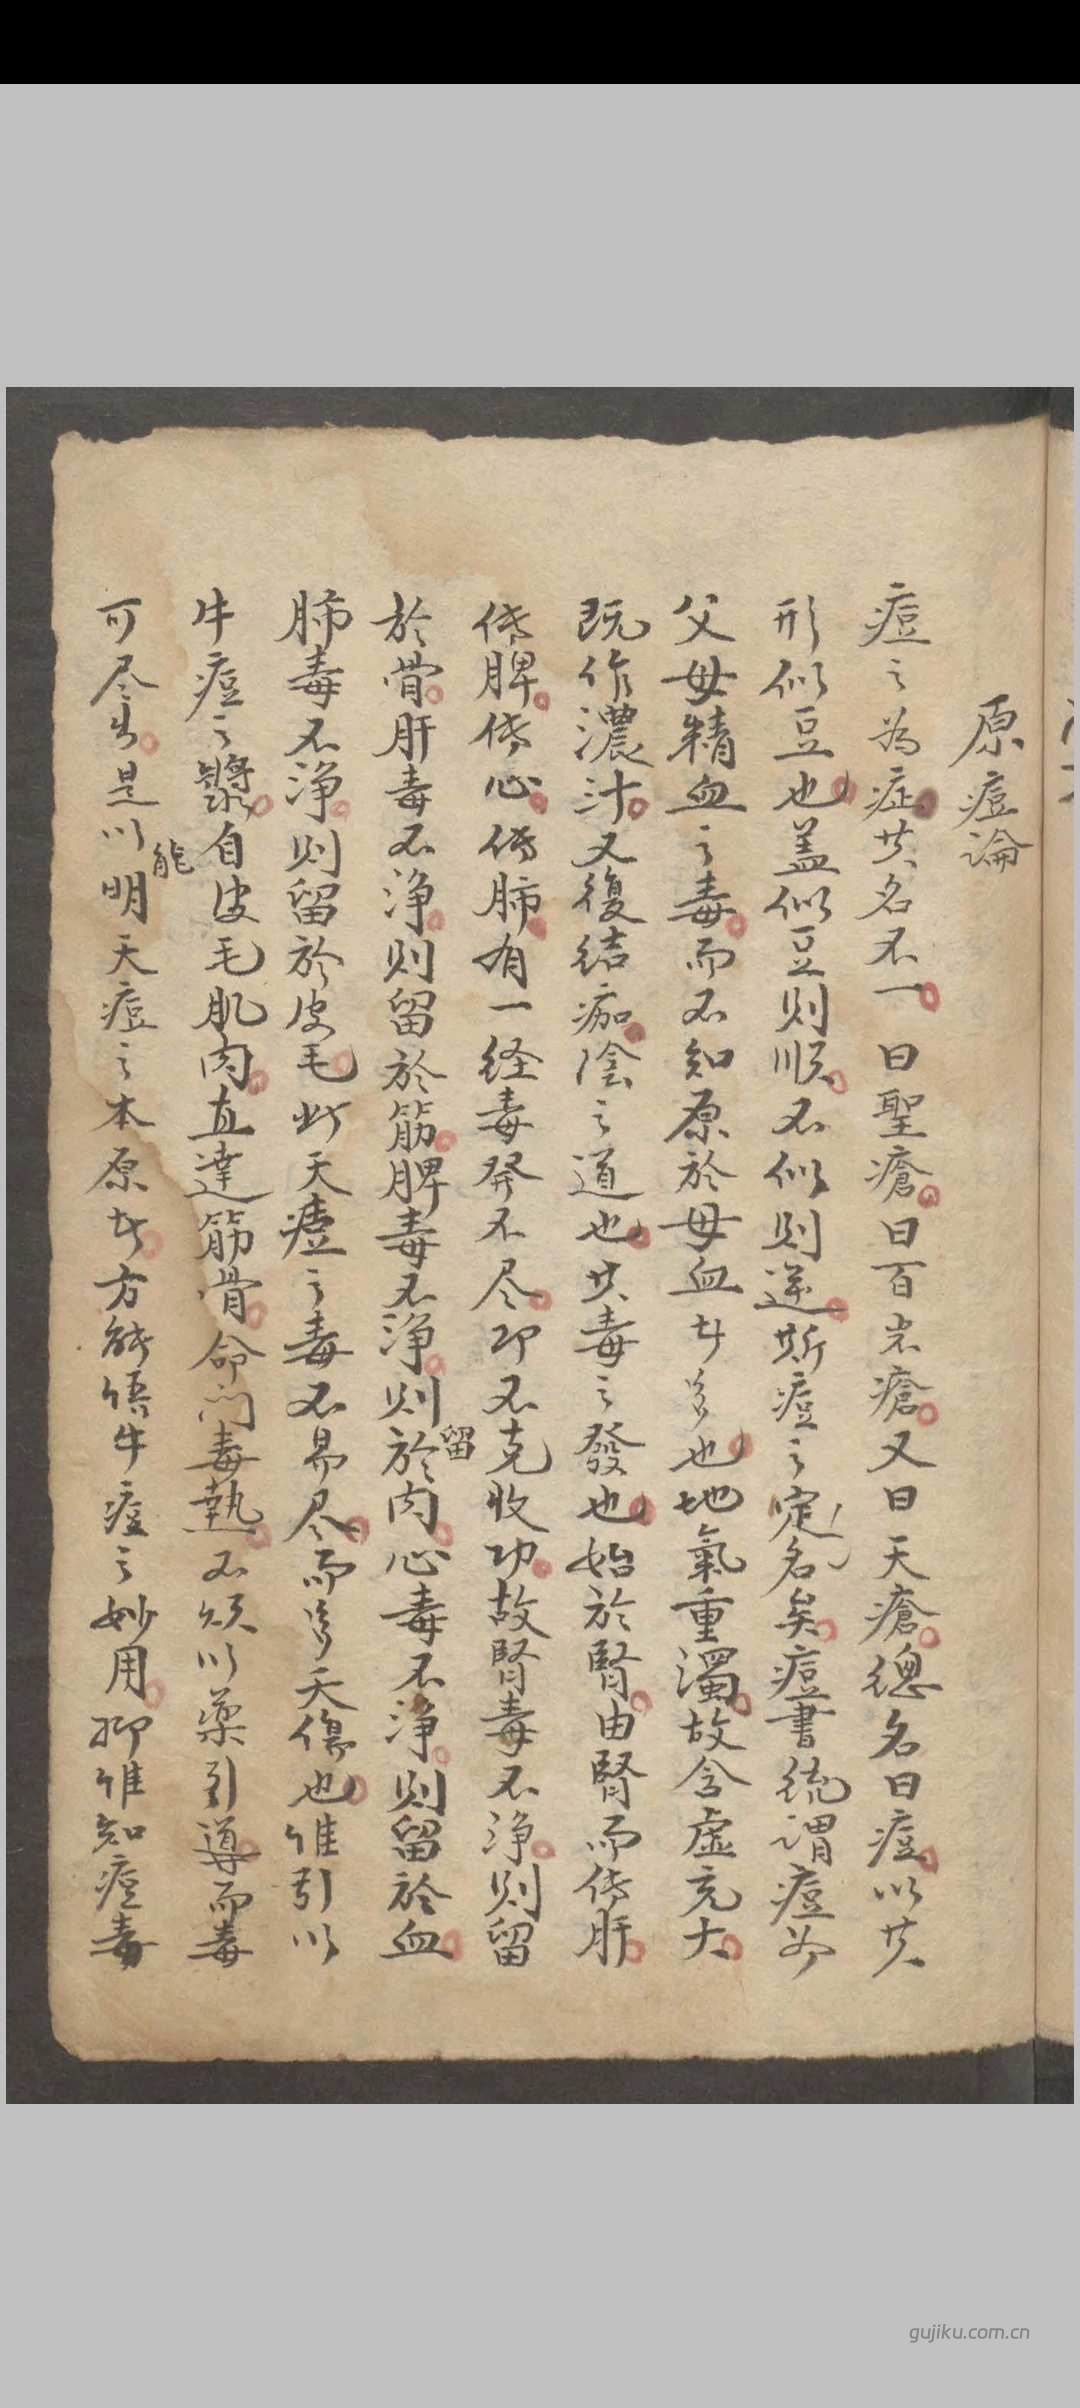 原痘論
痘之為症其名不一曰聖瘡曰百岁瘡又曰天瘡總名曰痘以其
形似豆也盖似豆则順不似则逆斯痘之定名矣痘書统谓痘為
父母精血之毒而不知原於母血者多也地氣重濁故含虚充大
既作濃汁又復结痂陰之道也其毒之發也始於腎由腎而传肝
传脾传心传肺有一经毒發不尽即不克收功故腎毒不净则留
於骨肝毒不净则留於筋脾毒不净则留於肉心毒不净则留於血
肺毒不净则留於皮毛此天痘之毒不易尽而多夭傷也惟引以
牛痘之漿自皮毛肌肉直達筋骨命门毒熱不须以藥引導而毒
可尽出是以能明天痘之本原者方能悟牛痘之妙用抑惟知痘毒
gujiku.com.cn